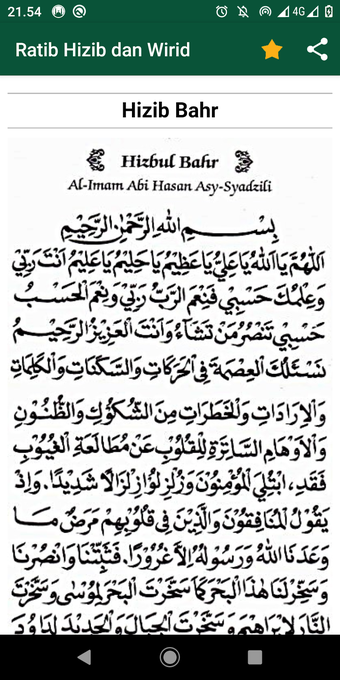 21.54
4G
Ratib Hizib dan Wirid
Hizib Bahr
Hizbul Bahr
Al-Imam Abi Hasan Asy-Syadzili
بِسْمِ اللهِ الرَّحْمٰنِ الرَّحِيْمِ
اَللّٰهُمَّ يَا اَللهُ يَا عَلِيُّ يَا عَظِيْمُ يَا حَلِيْمُ يَا عَلِيْمُ اَنْتَ رَبِّيْ
وَعِلْمُكَ حَسْبِيْ فَنِعْمَ الرَّبُّ رَبِّيْ وَنِعْمَ الْحَسْبُ
حَسْبِيْ تَنْصُرُ مَنْ تَشَآءُ وَاَنْتَ الْعَزِيْزُ الرَّحِيْمُ
نَسْئَلُكَ الْعِصْمَةَ فِى الْحَرَكَاتِ وَالسَّكَنَاتِ وَالْكَلِمَاتِ
وَالْاِرَادَاتِ وَالْخَطَرَاتِ مِنَ الشُّكُوْكِ وَالظُّنُوْنِ
وَالْاَوْهَامِ السَّاتِرَةِ لِلْقُلُوْبِ عَنْ مُطَالَعَةِ الْغُيُوْبِ
فَقَدِ، ابْتُلِيَ الْمُؤْمِنُوْنَ وَزُلْزِلُوْا زِلْزَالًا شَدِيْدًا. وَاِذْ
يَقُوْلُ الْمُنَافِقُوْنَ وَالَّذِيْنَ فِى قُلُوْبِهِمْ مَرَضٌ مَا
وَعَدَنَا اللهُ وَرَسُوْلُهُ اِلَّا غُرُوْرًا. فَثَبِّتْنَا وَانْصُرْنَا
وَسَخِّرْ لَنَا هٰذَا الْبَحْرَ كَمَا سَخَّرْتَ الْبَحْرَ لِمُوْسٰى وَسَخَّرْتَ
النَّارَ لِاِبْرَاهِيْمَ وَسَخَّرْتَ الْجِبَالَ وَالْحَدِيْدَ لِدَاوُدَ